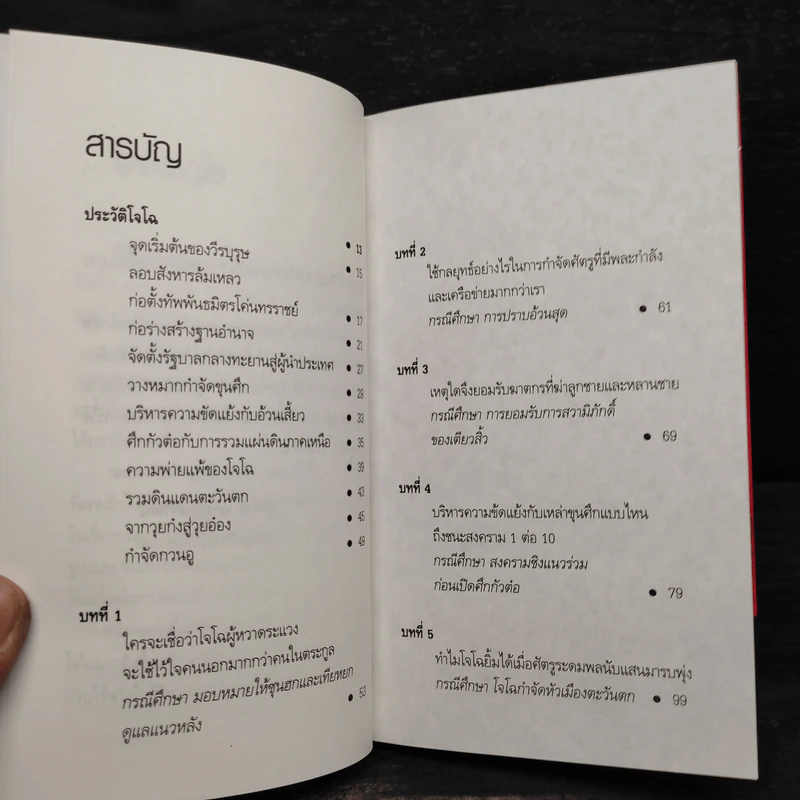 สารบัญ
ประวัติโจโฉ
จุดเริ่มต้นของวีรบุรุษ • 13
ลอบสังหารล้มเหลว • 15
ก่อตั้งทัพพันธมิตรโค่นทรราชย์ • 17
ก่อร่างสร้างฐานอำนาจ • 21
จัดตั้งรัฐบาลกลางทะยานสู่ผู้นำประเทศ • 27
วางหมากกำจัดขุนศึก • 29
บริหารความขัดแย้งกับอ้วนเสี้ยว • 33
ศึกกัวต่อกับการรวมแผ่นดินภาคเหนือ • 35
ความพ่ายแพ้ของโจโฉ • 39
รวมดินแดนตะวันตก • 43
จากวุยก๋งสู่วุยอ๋อง • 45
กำจัดกวนอู • 49
บทที่ 1
ใครจะเชื่อว่าโจโฉผู้หวาดระแวง
จะใช้ไว้ใจคนนอกมากกว่าคนในตระกูล
กรณีศึกษา มอบหมายให้ซุนฮกและเทียหยก
ดูแลแนวหลัง • 53
บทที่ 2
ใช้กลยุทธ์อย่างไรในการกำจัดศัตรูที่มีพละกำลัง
และเครือข่ายมากกว่าเรา
กรณีศึกษา การปราบอ้วนสุด • 61
บทที่ 3
เหตุใดจึงยอมรับฆาตกรที่ฆ่าลูกชายและหลานชาย
กรณีศึกษา การยอมรับการสวามิภักดิ์
ของเตียวสิ้ว • 69
บทที่ 4
บริหารความขัดแย้งกับเหล่าขุนศึกแบบไหน
ถึงชนะสงคราม 1 ต่อ 10
กรณีศึกษา สงครามชิงแนวร่วม
ก่อนเปิดศึกกัวต่อ • 79
บทที่ 5
ทำไมโจโฉยิ้มได้เมื่อศัตรูระดมพลนับแสนมารบพุ่ง
กรณีศึกษา โจโฉกำจัดหัวเมืองตะวันตก • 99